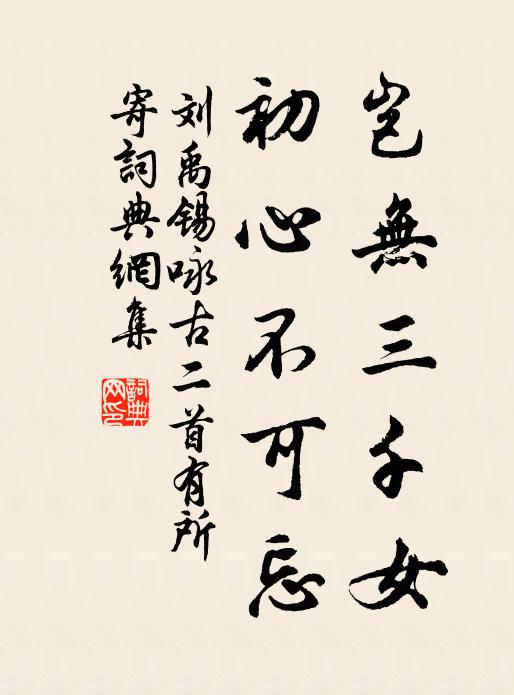 岂無三千女
初心不可忘
刘禹锡咏古二首有所
寄詞典網集
詞典网印